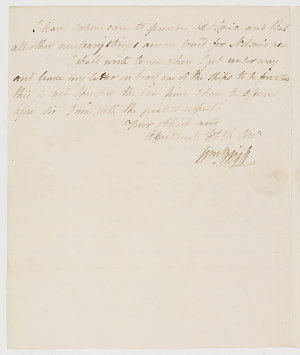 I have taken care to provide            and that
all other necessary things are on board for
I shall write to you when I get under way
and leave my letter on board one of the ships to be forwarded
this is not therefore the last time I have to
upon Sir I am with the greatest respect
Your obliged and
            Serv.t
Wm Bligh